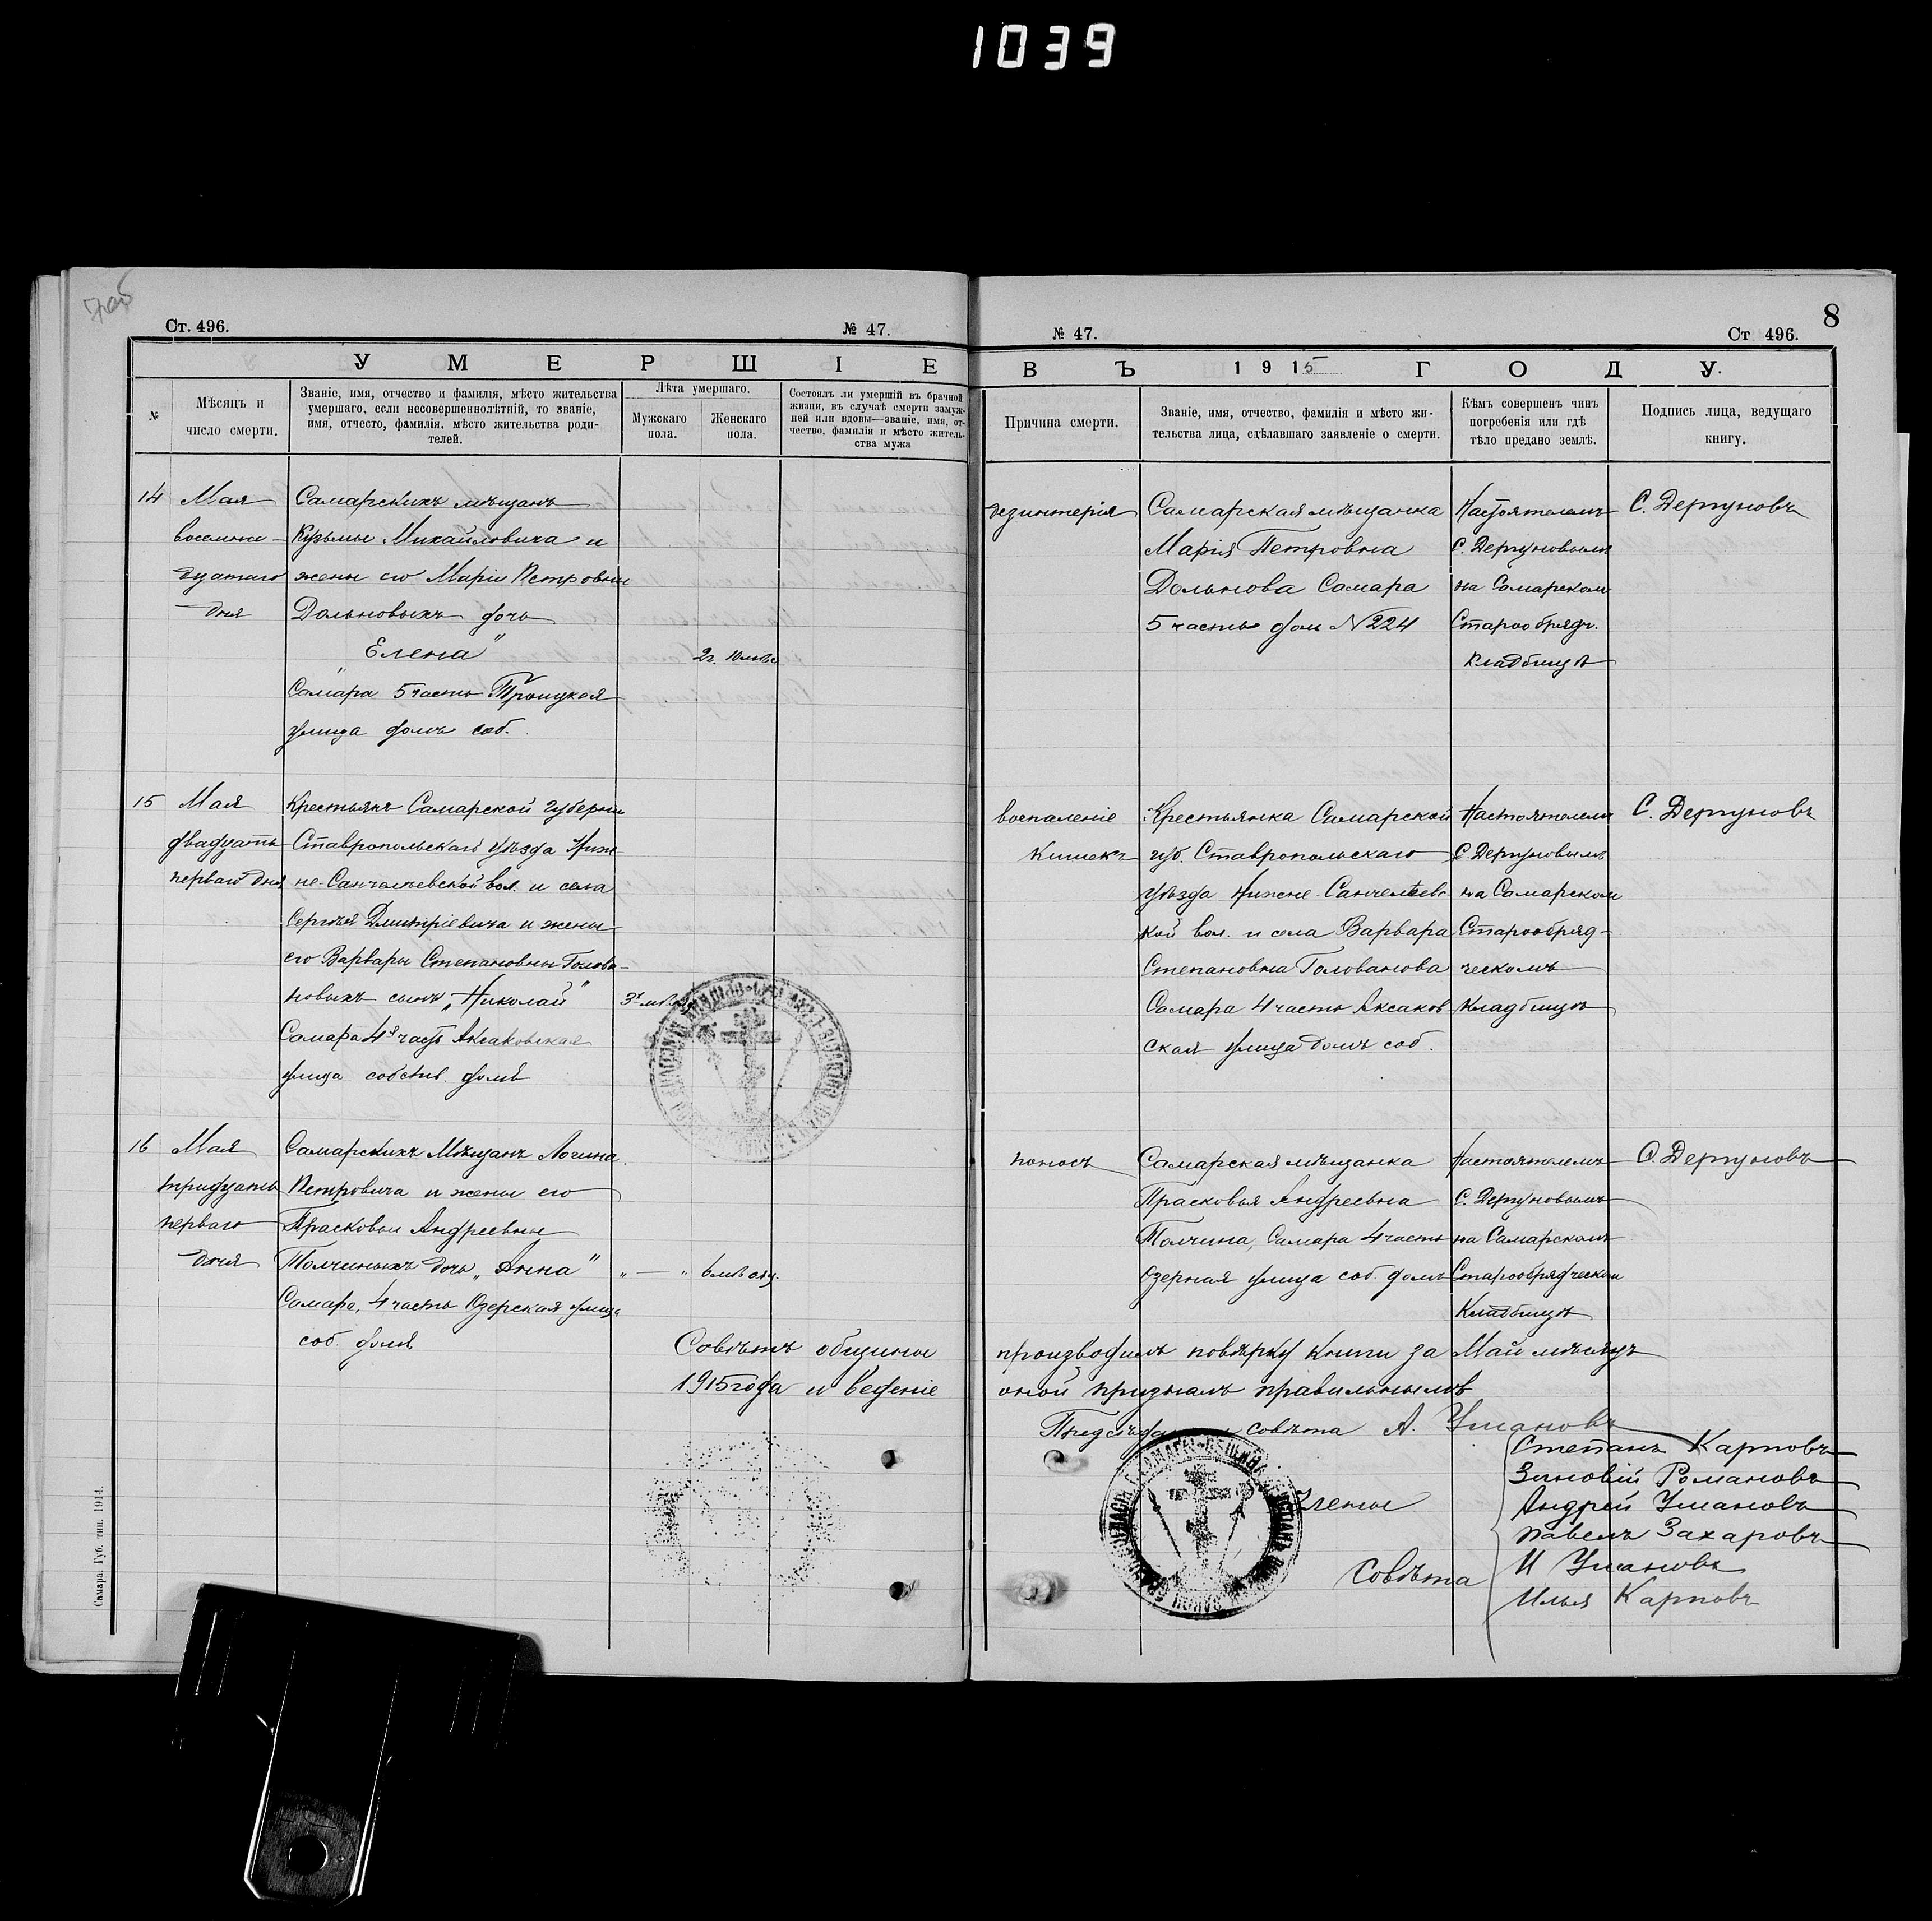 1039
Ст. 496.
№ 47.
УМЕРШІЕ
№
Мѣсяцъ и
число смерти.
Званіе, имя, отчество и фамилія, мѣсто жительства
умершаго, если несовершеннолѣтній, то званіе,
имя, отчесто, фамилія, мѣсто жительства роди-
телей.
Лѣта умершаго.
Мужскаго
пола.
Женскаго
пола.
Состоялъ ли умершій въ брачной
жизни, въ случаѣ смерти замуж-
ней или вдовы—званіе, имя, от-
чество, фамилія и мѣсто житель-
ства мужа
14
Мая
восемна-
дцатаго
дня
Самарскихъ мѣщанъ
Кузьмы Михайловича и
жены его Маріи Петровны
Дольновыхъ дочь
„Елена"
Самара 5 часть Троицкая
улица домъ соб.
2г. 10 мѣс
15
Мая
двадцать
перваго дня
Крестьянъ Самарской губерніи
Ставропольскаго уѣзда Ниж
не-Санчелеевской вол. и села
Сергѣя Дмитріевича и жены
его Варвары Степановны Голова-
новыхъ сынъ „Николай"
Самара 4я часть Аксаковская
улица собств. домъ
3х мѣс
16
Мая
тридцать
перваго
дня
Самарскихъ Мѣщанъ Логина
Петровича и жены его
Прасковьи Андреевны
Толчиныхъ дочь „Анна"
Самара, 4 часть Озерская улица
соб. домъ
„ — „
6 мѣсяц.
Самара. Губ. тип. 1914.
№ 47.
Ст 496.
8
ВЪ 1915 ГОДУ.
Причина смерти.
Званіе, имя, отчество, фамилія и мѣсто жи-
тельства лица, сдѣлавшаго заявленіе о смерти.
Кѣмъ совершенъ чинъ
погребенія или гдѣ
тѣло предано землѣ.
Подпись лица, ведущаго
книгу.
дезинтерія
Самарская мѣщанка
Марія Петровна
Дольнова Самара
5 часть дом №224
Настоятелемъ
С. Дергуновымъ
на Самарском
Старообрядч.
кладбищѣ
С. Дергуновъ
воспаленіе
кишекъ
Крестьянка Самарской
губ. Ставропольскаго
уѣзда Нижне-Санчелѣевс-
кой вол. и села Варвара
Степановна Голованова
Самара 4 часть Аксаков
ская улица домъ соб.
Настоятелемъ
С. Дергуновымъ
на Самарском
Старообряд-
ческомъ
кладбищѣ
С. Дергуновъ
поносъ
Самарская мѣщанка
Прасковья Андреевна
Толчина, Самара 4 часть
Озерная улица соб. домъ
Настоятелемъ
С. Дергуновымъ
на Самарскомъ
Старообрядческом
Кладбищѣ
С. Дергуновъ
Совѣтъ общины производилъ повѣрку книги за Май мѣсяцъ
1915 года и веденіе оной призналъ правильнымъ
Предсѣда совѣта А. Умановъ
Члены
Совѣта
Степанъ Карповъ
Зиновій Романовъ
Андрей Умановъ
Павелъ Захаровъ
И Умановъ
Илья Карповъ